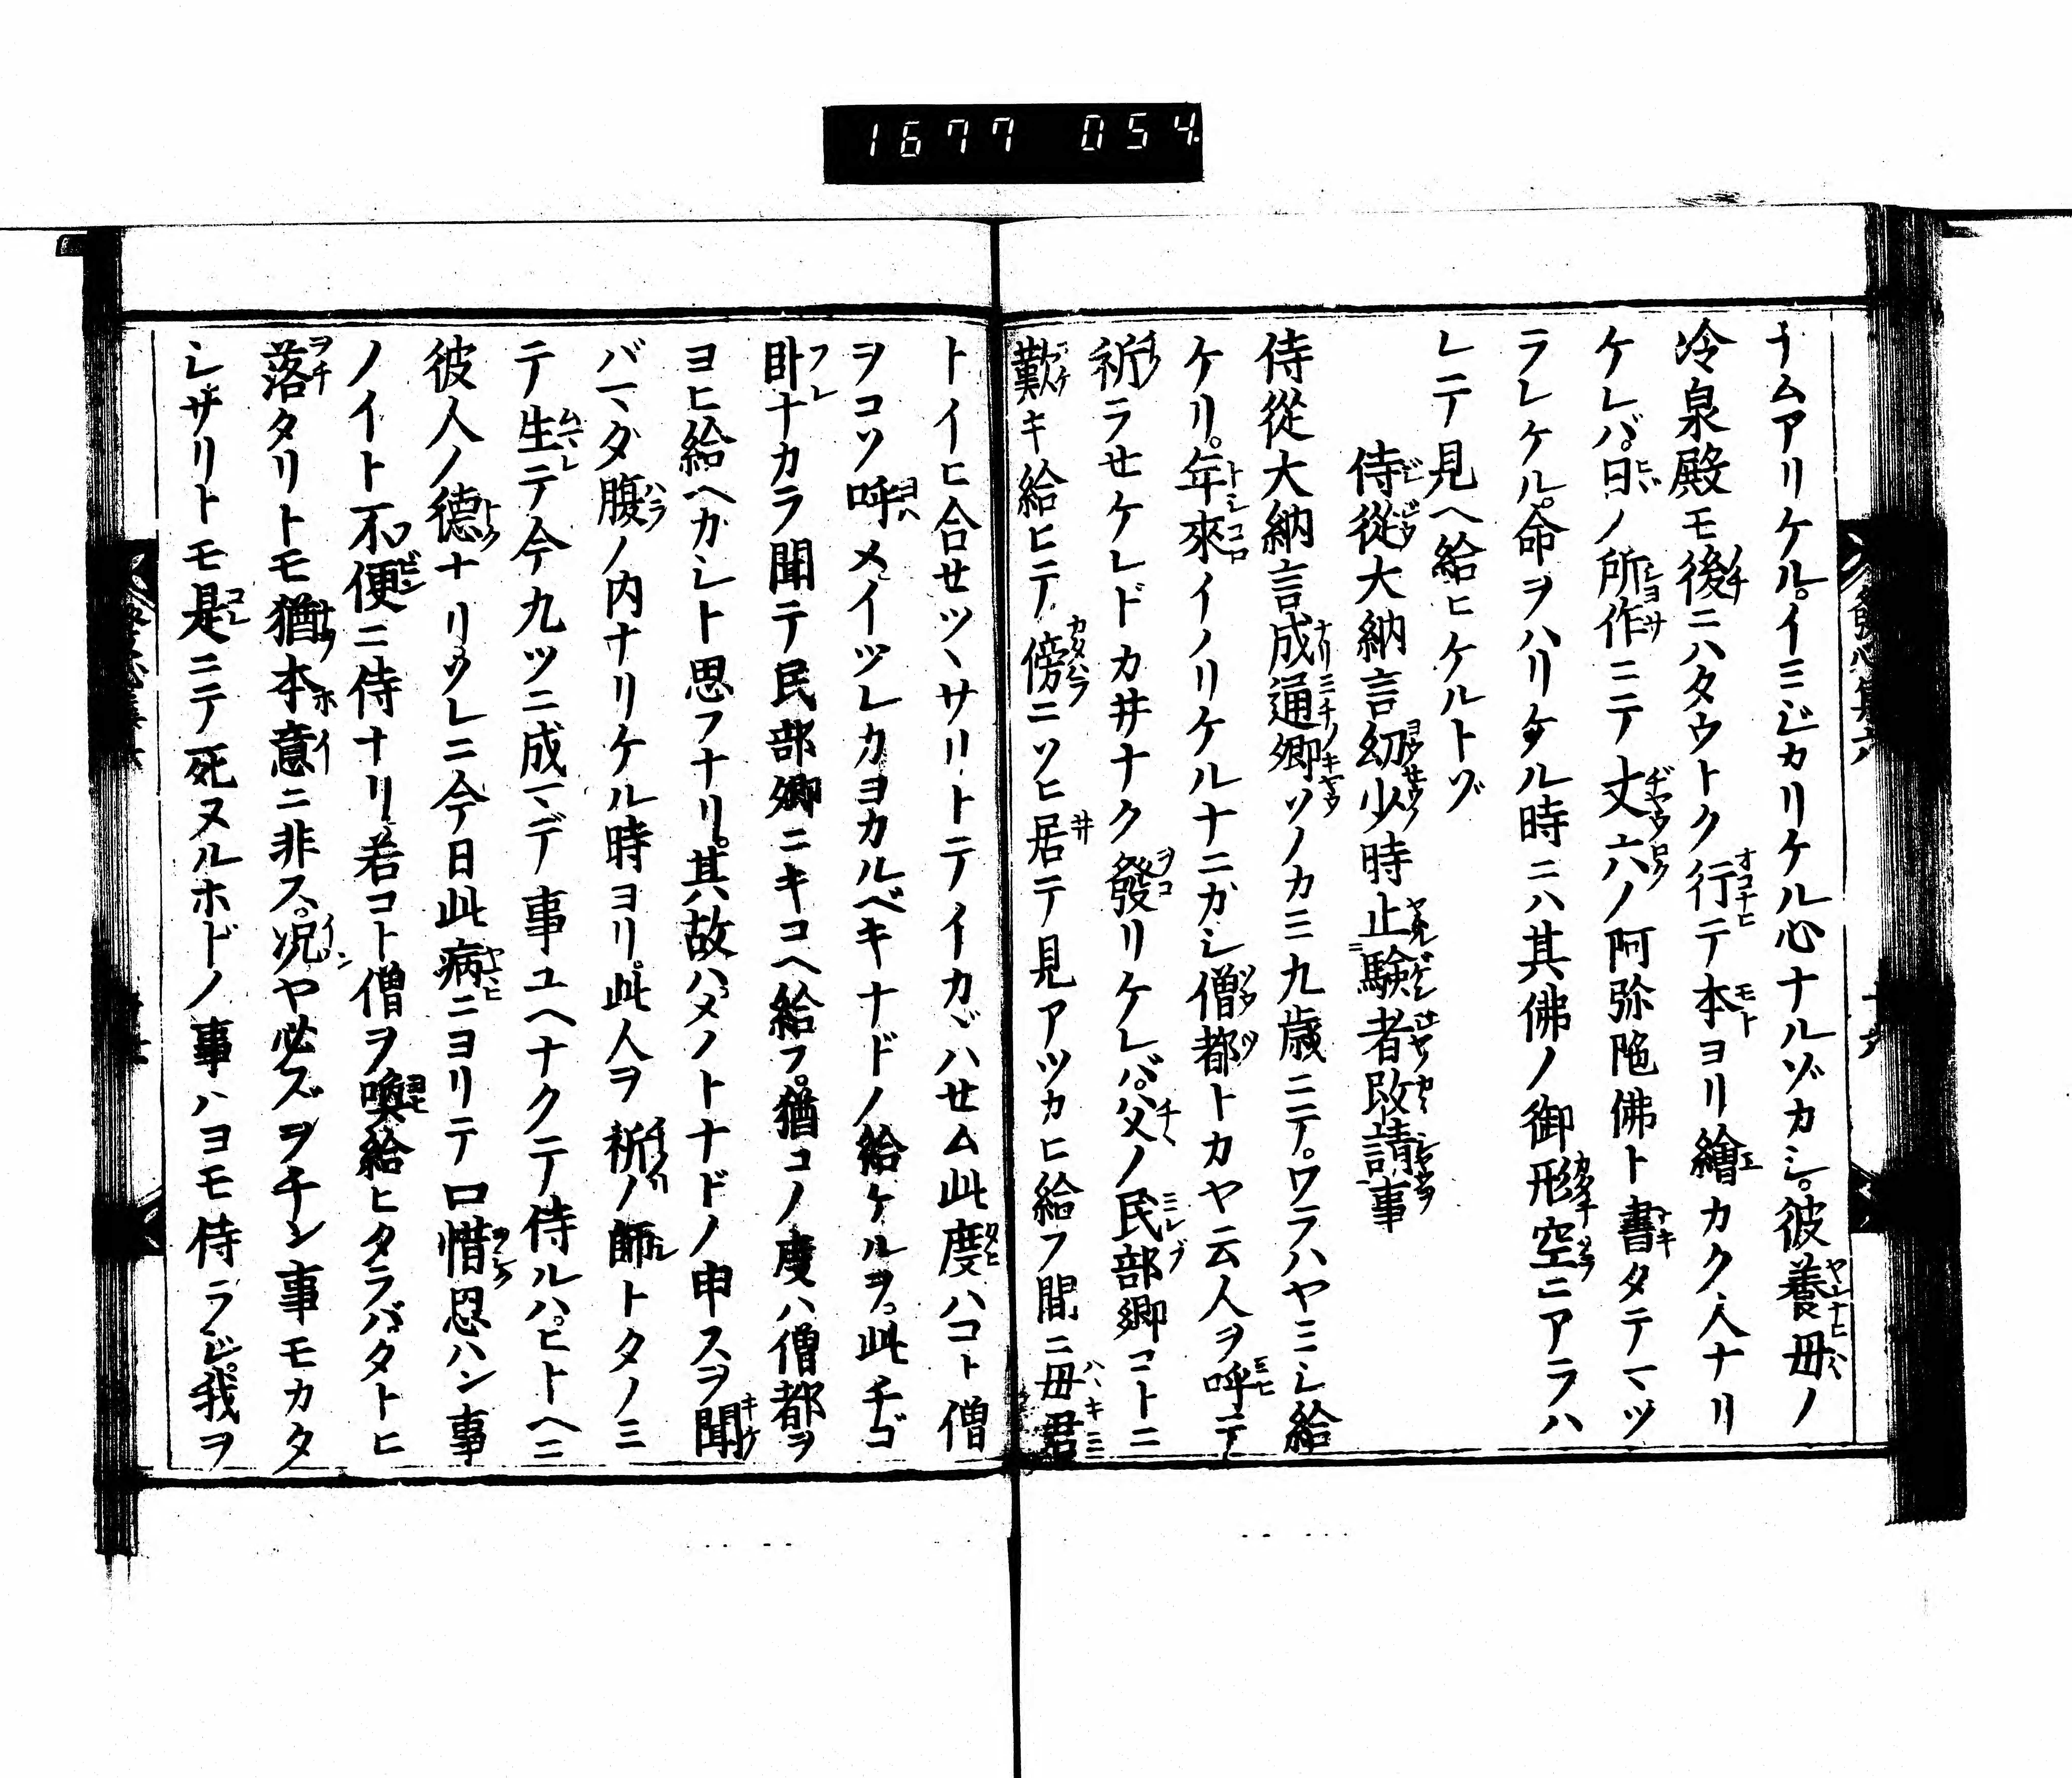 1677 054
ナムアリケル。イミジカリケル心ナルゾカシ。彼養母ノ
冷泉殿モ後ニハタウトク行テ本ヨリ繪カク人ナリ
ケレバ。日ノ所作ニテ丈六ノ阿弥陀佛ト書タテマツ
ラレケル。命ヲハリケル時ニハ其佛ノ御形空ニアラハ
レテ見ヘ給ヒケルトゾ
侍從大納言幼少時止驗者改請事
侍從大納言成通卿ソノカミ九歳ニテ。ワラハヤミシ給
ケリ。年來イノリケルナニガシ僧都トカヤ云人ヲ呼テ
祈ラセケレドカ井ナク發リケレバ。父ノ民部卿コトニ
歎キ給ヒテ傍ニソヒ居テ見アツカヒ給フ間ニ母君
トイヒ合セツヽサリトテイカヾハセム此度ハコト僧
ヲコソ呼メイツレカヨカルベキナドノ給ケルヲ。此チゴ
臥ナカラ聞テ民部卿ニキコヘ給フ。猶コノ度ハ僧都ヲ
ヨヒ給ヘカシト思フナリ。其故ハメノトナドノ申スヲ聞
バマダ腹ノ内ナリケル時ヨリ。此人ヲ祈ノ師トタノミ
テ生テ今九ツニ成マデ事ユヘナクテ侍ルハ。ヒトヘニ
彼人ノ德ナリ。ソレニ今日此病ニヨリテ口惜思ハン事
ノイト不便ニ侍ナリ。若コト僧ヲ喚給ヒタラバ。タトヒ
落タリトモ猶本意ニ非ス。况ヤ必ズヲチン事モカタ
シ。サリトモ是ニテ死ヌルホドノ事ハヨモ侍ラジ。我ヲ